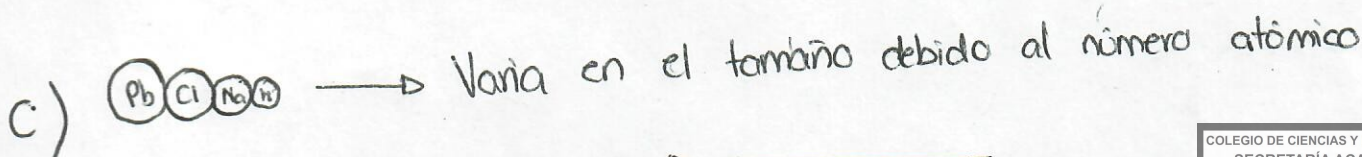 c) Pb Cl Na H → Varia en el tamaño debido al número atómico
COLEGIO DE CIENCIAS Y